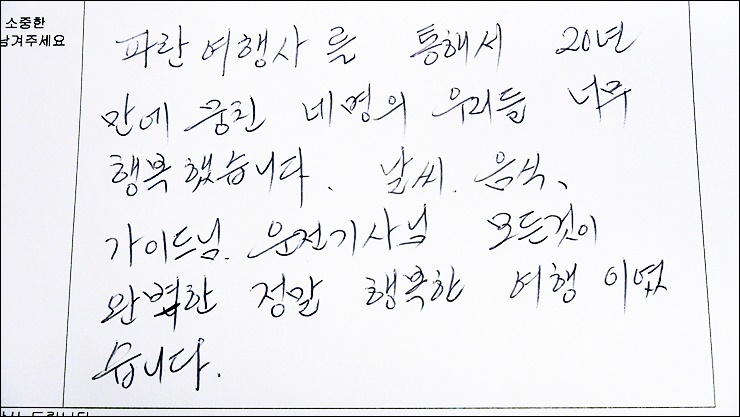 소중한
남겨주세요
파란여행사를 통해서 20년
만에 뭉친 네명의 우리들 너무
행복했습니다. 날씨. 음식、
가이드님. 운전기사님 모든것이
완벽한 정말 행복한 여행이였
습니다.